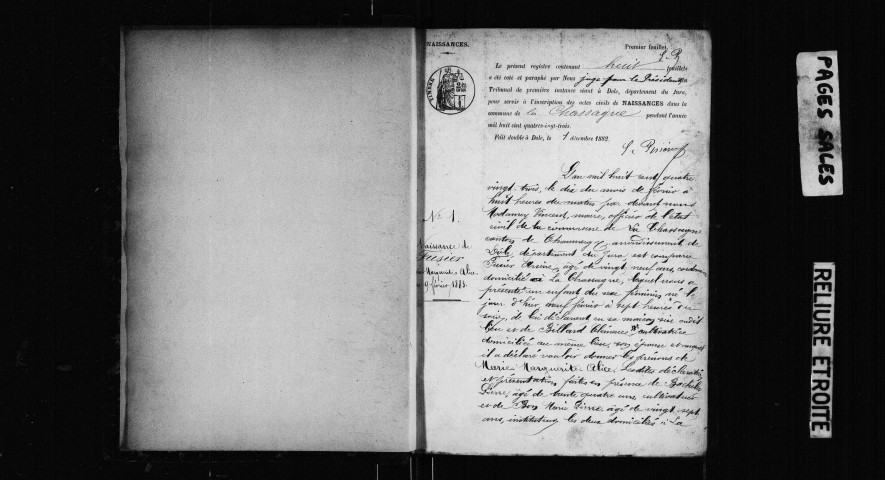 NAISSANCES.
Premier feuillet.
Le présent registre contenant huit feuillets
a été coté et paraphé par Nous juge pour le Président du
Tribunal de première instance séant à Dole, département du Jura,
pour servir à l'inscription des actes civils de NAISSANCES dans la
commune de la Chassagne pendant l'année
mil huit cent quatre-vingt-trois.
Fait double à Dole, le 1 décembre 1882.
TIMBRE
L'an mil huit cent quatre
vingt trois, le dix du mois de février à
huit heures du matin par devant nous
Vincent, maire, officier de l'état
civil de la commune de La Chassagne
canton de Chaussin, arrondissement de
Dôle, département du Jura est comparu
Fusier âgé de vingt neuf ans, cordonnier
domicilié à La Chassagne, lequel nous a
présenté un enfant du sexe féminin né le
jour d'hier, neuf février à sept heures du
soir, de lui déclarant en sa maison sise audit
lieu et de Billard cultivatrice
domiciliée au même lieu, son épouse et auquel
il a déclaré vouloir donner les prénoms de
Marie Marguerite Alice. Lesdites déclaration
et présentation faites en présence de
Pierre, âgé de trente quatre ans, cultivateur
et de Bon Marie Pierre âgé de vingt sept
ans, instituteur, les deux domiciliés à La
N° 1.
Naissance de
Fusier
Marguerite Alice
9 février 1883.
PAGES SALES
RELIURE ETROITE